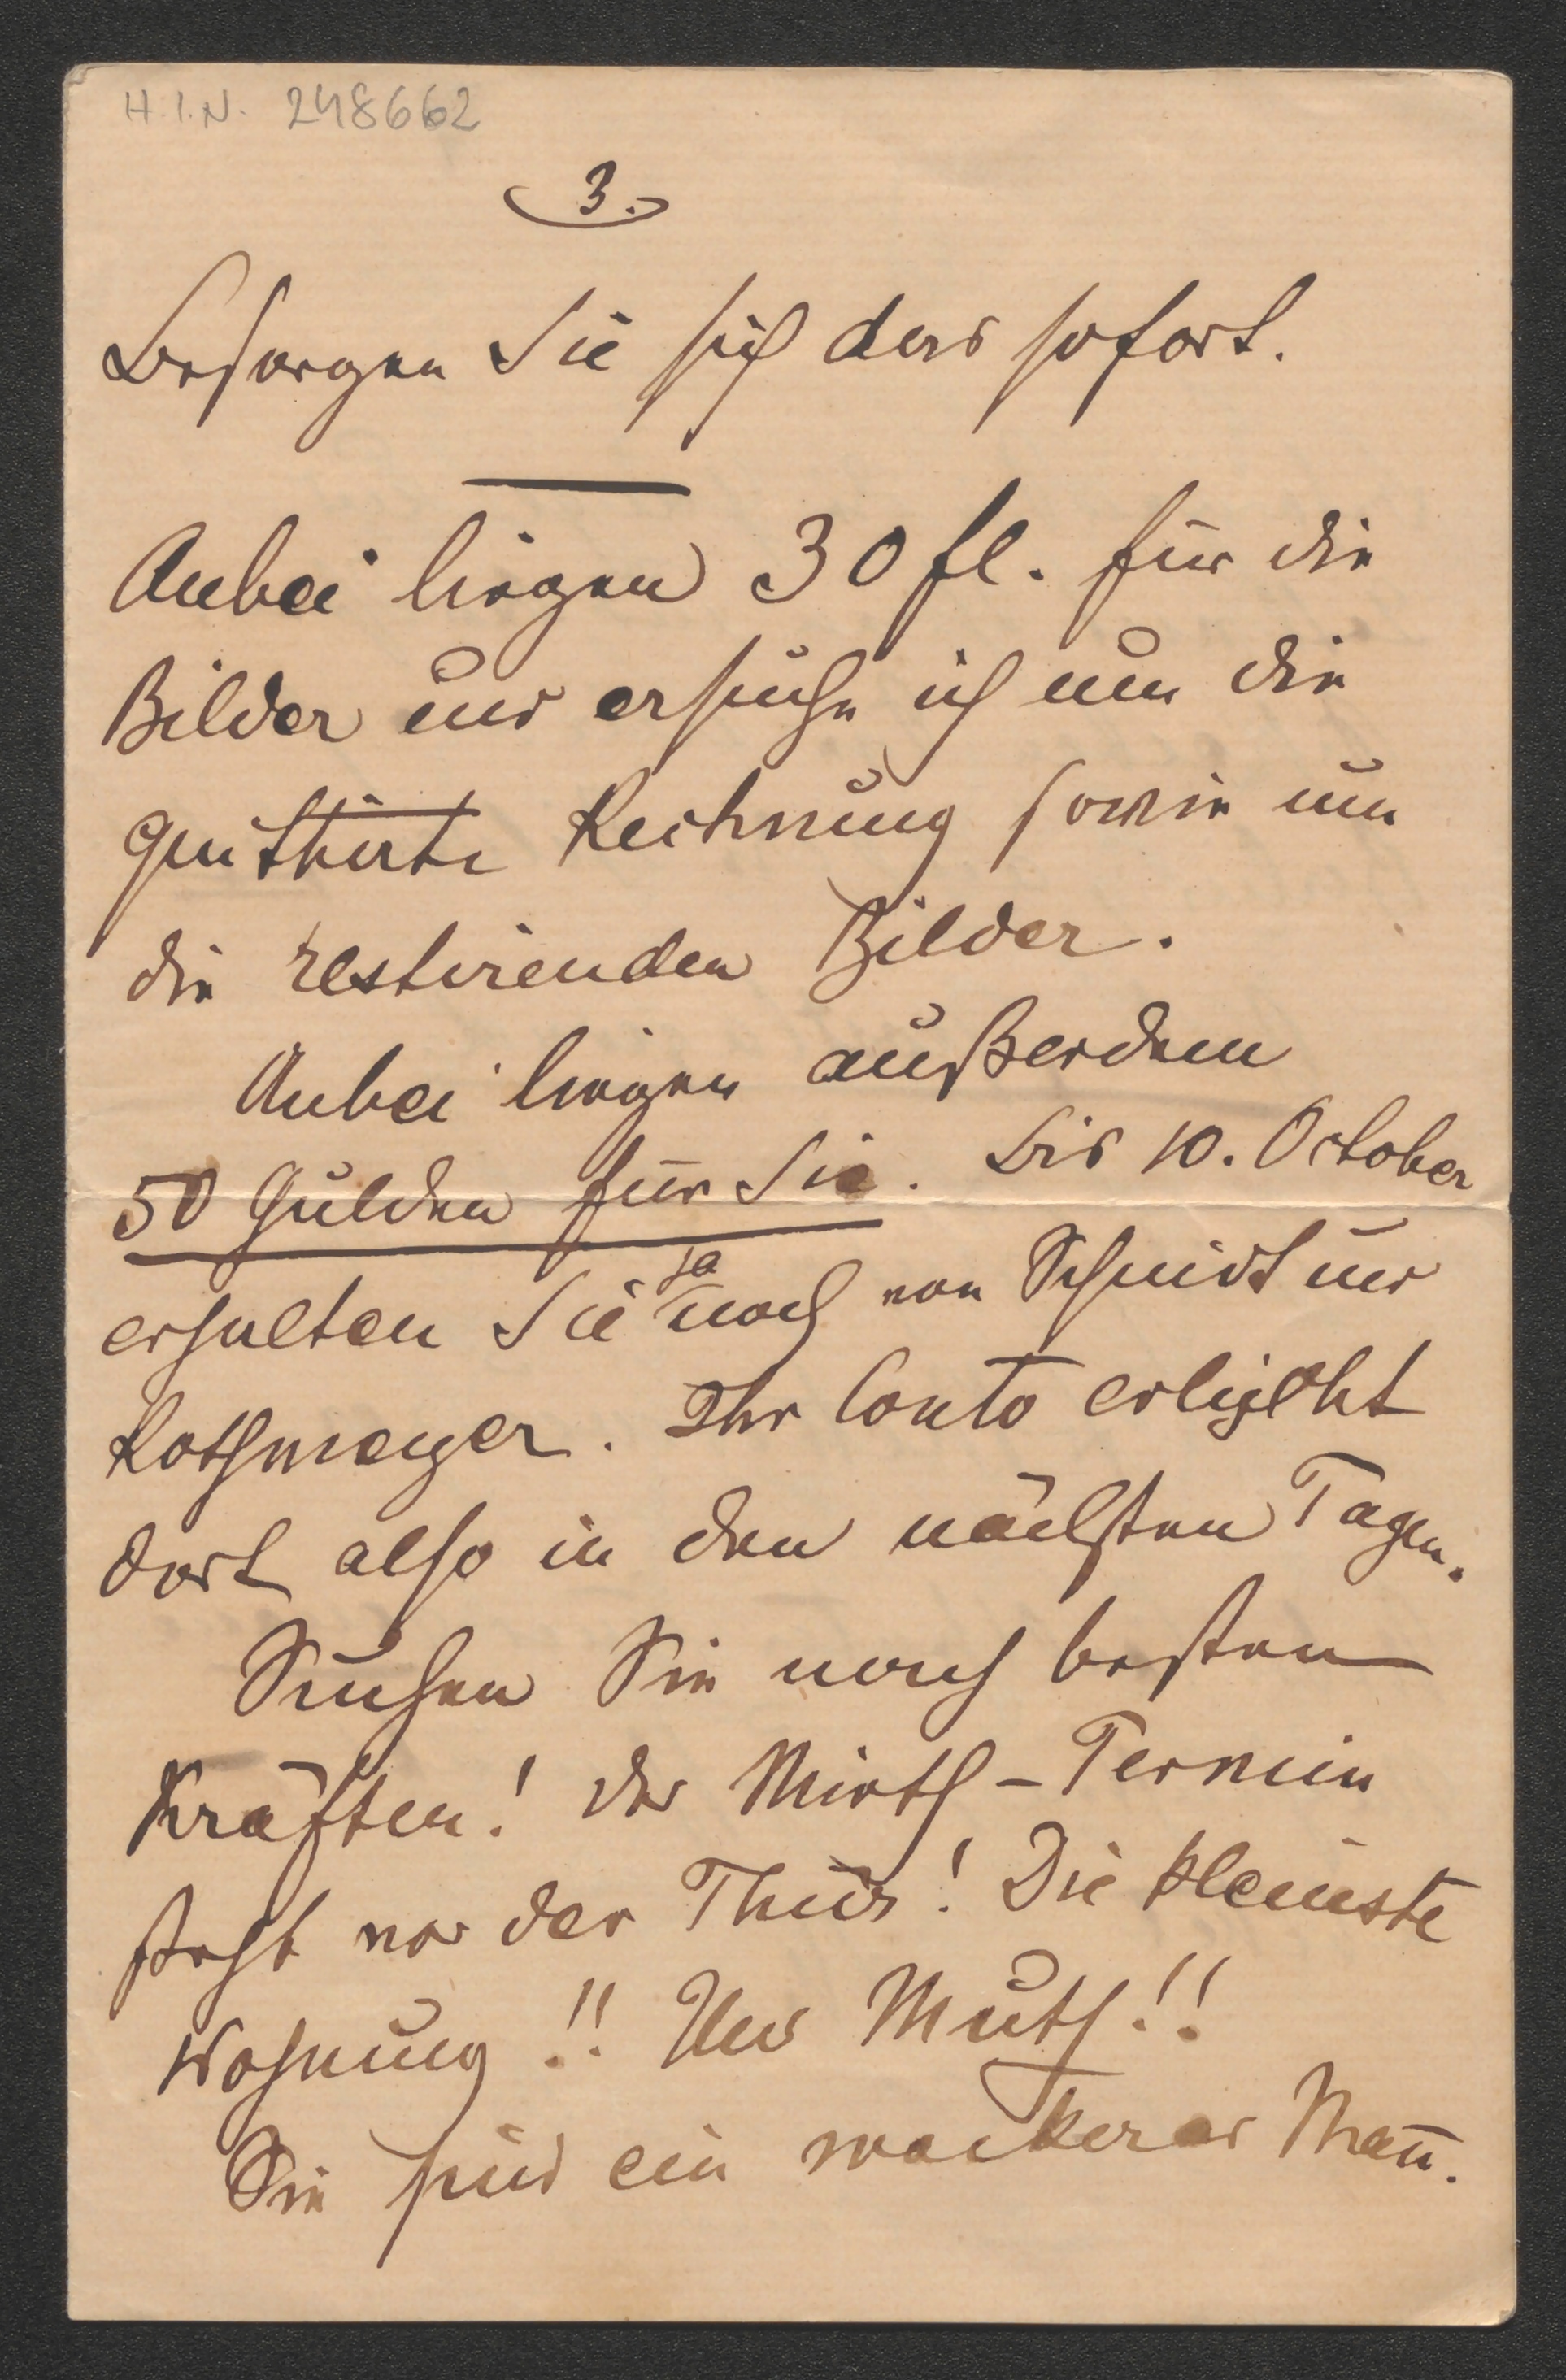 H.I.N. 248662
3.
Besorgen Sie sich das sofort.
Anbei liegen 30 fl. für die
Bilder und ersuche ich um die
quittirte Rechnung sowie um
die restirenden Bilder.
Anbei liegen außerdem
50 Gulden für Sie. Bis 10. October
erhalten Sie ja noch von Schmidt und
Rothmeyer. Ihr Conto erlischt
dort also in den nächsten Tagen.
Suchen Sie nach besten
Kräften! Der Mieth-Termin
steht vor der Thür! Die kleinste
Wohnung!! Und Muth!!
Sie sind ein wackerer Mañ.